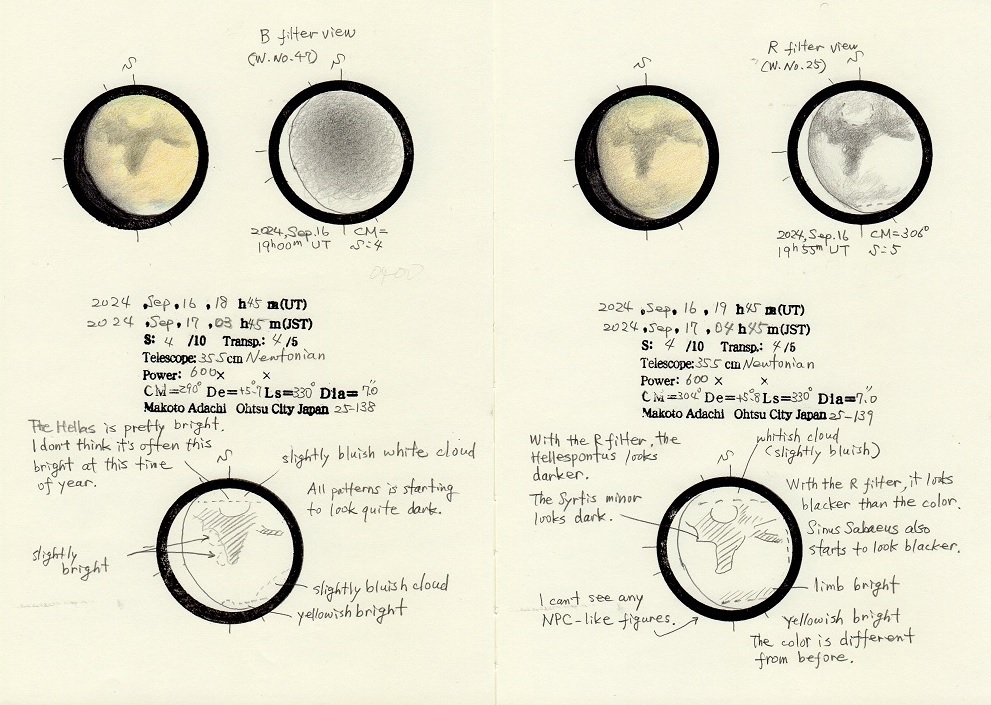 B filter view
(W.No.47)
S
S
2024, Sep.16 CM=
19h00m UT S=4
2024 Sep. 16 . 18 h45 m(UT)
2024 Sep. 17 . 03 h45 m(JST)
S: 4 /10 Transp.: 4/5
Telescope: 35.5cm Newtonian
Power: 600× ×
CM=290° De=+5.7 Ls=330° Dia= 7.0"
Makoto Adachi Ohtsu City Japan 25-138
The Hellas is pretty bright.
I don't think it's often this
bright at this time
of year.
S
slightly bluish white cloud
All patterns is starting
to look quite dark.
slightly
bright
slightly bluish cloud
yellowish bright
R filter view
(W.No.25)
S
S
2024, Sep.16 CM=306°
19h55m UT S=5
2024 Sep. 16 . 19 h45 m(UT)
2024, Sep. 17 . 04 h45 m(JST)
S: 4 /10 Transp.: 4/5
Telescope: 35.5cm Newtonian
Power: 600 × ×
CM=304° De=+5.8 Ls=330° Dia=7.0"
Makoto Adachi Ohtsu City Japan 25-139
With the R filter, the
Hellespontus looks
darker.
The Syrtis minor
looks dark.
S
whitish cloud
(slightly bluish)
With the R filter, it looks
blacker than the color.
Sinus Sabaeus also
starts to look blacker.
limb bright
I can't see any
NPC-like figures.
yellowish bright
The color is different
from before.